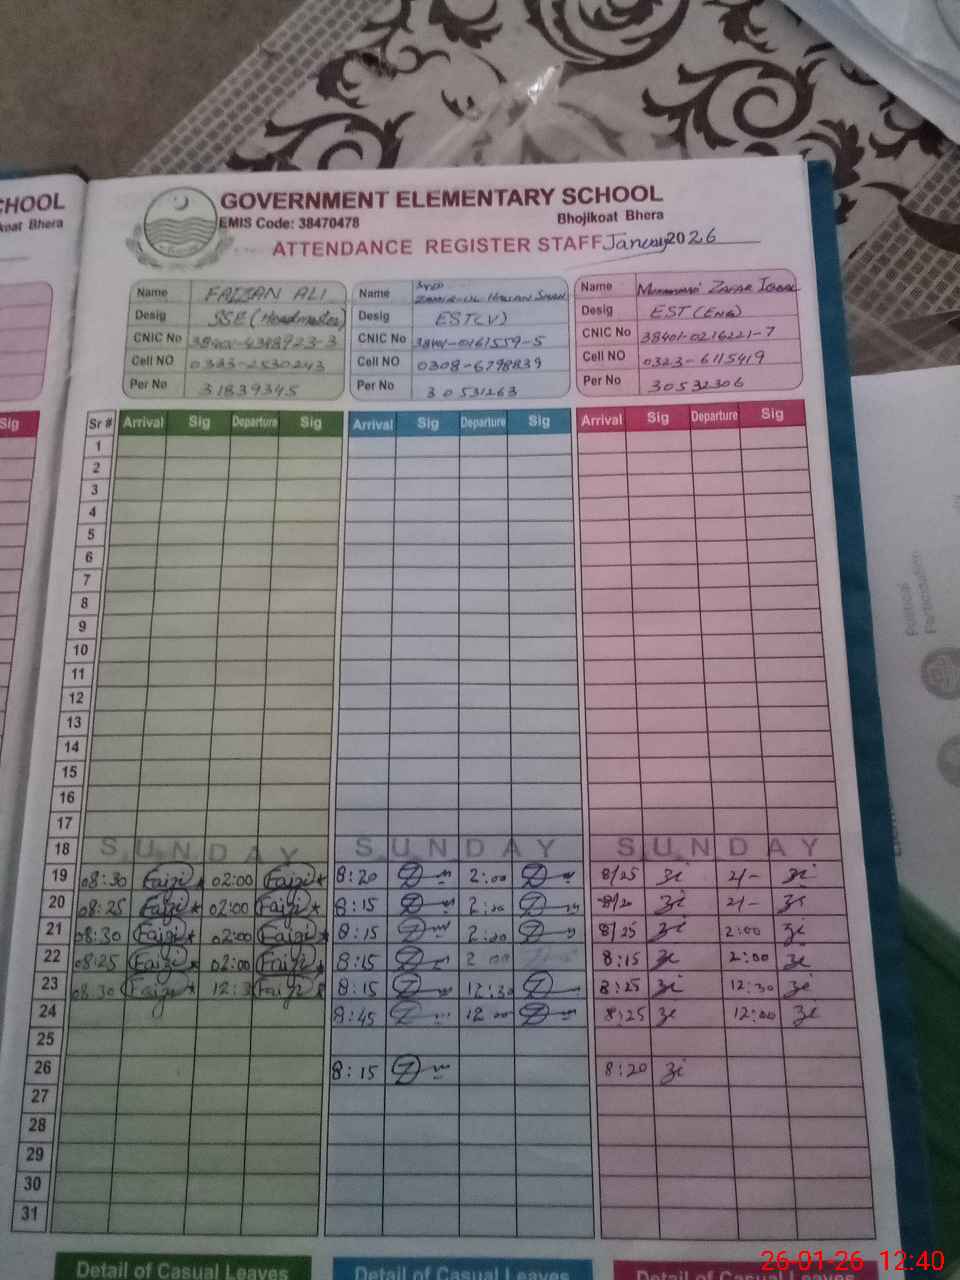 HOOL
koat Bhera
Sig
GOVERNMENT ELEMENTARY SCHOOL
EMIS Code: 38470478 Bhojikoat Bhera
ATTENDANCE REGISTER STAFF January 2026
Name FAIZAN ALI Name SYED ZAMIR-UL-HASSAN SHAH Name MUHAMMAD ZAFAR IQBAL
Desig SSE (Headmaster) Desig EST (V) Desig EST (ENG)
CNIC No CNIC No CNIC No 38401-0216221-7
Cell NO 0333-2530243 Cell NO 0308-6798839 Cell NO 0323-6115419
Per No 31839345 Per No 30531263 Per No 30532306
Sr # Arrival Sig Departure Sig Arrival Sig Departure Sig Arrival Sig Departure Sig
1
2
3
4
5
6
7
8
9
10
11
12
13
14
15
16
17
18 SUNDAY SUNDAY SUNDAY
19 08:30 Faizi 02:00 Faizi 8:20 2:00 8/25 2/-
20 08:25 Faizi 02:00 Faizi 8:15 2:00 8/20 2/-
21 08:30 Faizi 02:00 Faizi 8:15 2:00 8/25 2:00
22 08:25 Faizi 02:00 Faizi 8:15 2 00 8:15 2:00
23 08:30 Faizi 12:3 Faizi 8:15 12:30 8:25 12:30
24 8:45 12:00 8:25 12:00
25
26 8:15 8:20
27
28
29
30
31
Detail of Casual Leaves Detail of Casual Leaves Detail of Casual Leaves
Political
Participation
26-01-26 12:40